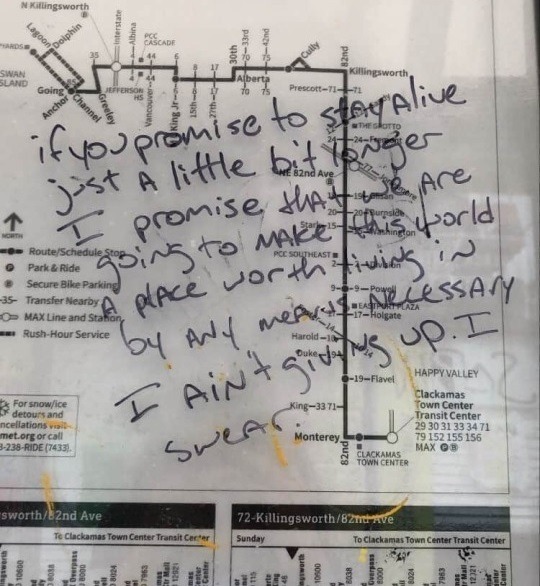 N Killingsworth
Interstate
Albina
PCC
CASCADE
Lagoon
Dolphin
YARDS
SWAN
SLAND
Going
Anchor
Channel
35
Greeley
JEFFERSON
HS
4
44
4
44
Vancouver
6
6
King Jr
8
8
15th
17
17
27th
30th
33rd
70
70
75
42nd
75
Alberta
Cully
82nd
Killingsworth
Prescott–71
71
if you promise to stay Alive
just A little bit longer
I promise that we Are
going to MAKE this World
A plAce worth living in
by ANY meANs Necessary
I Ain't giving up. I
sweAr.
THE GROTTO
24
24–Fremont
77
NE 82nd Ave
19
20
20–Burnside
Stark–15
Washington
PCC SOUTHEAST
2
Division
9
9–Powell
EASTPORT PLAZA
17
17–Holgate
Harold–10
Duke–19
14
19–Flavel
King–33 71
Monterey
82nd
HAPPY VALLEY
Clackamas
Town Center
Transit Center
29 30 31 33 34 71
79 152 155 156
MAX P B
CLACKAMAS
TOWN CENTER
NORTH
Route/Schedule Stop
P Park & Ride
B Secure Bike Parking
35 Transfer Nearby
MAX Line and Station
Rush-Hour Service
For snow/ice
detours and
ncellations visit
met.org or call
3-238-RIDE (7433).
sworth/82nd Ave
To Clackamas Town Center Transit Center
72-Killingsworth/82nd Ave
Sunday
To Clackamas Town Center Transit Center